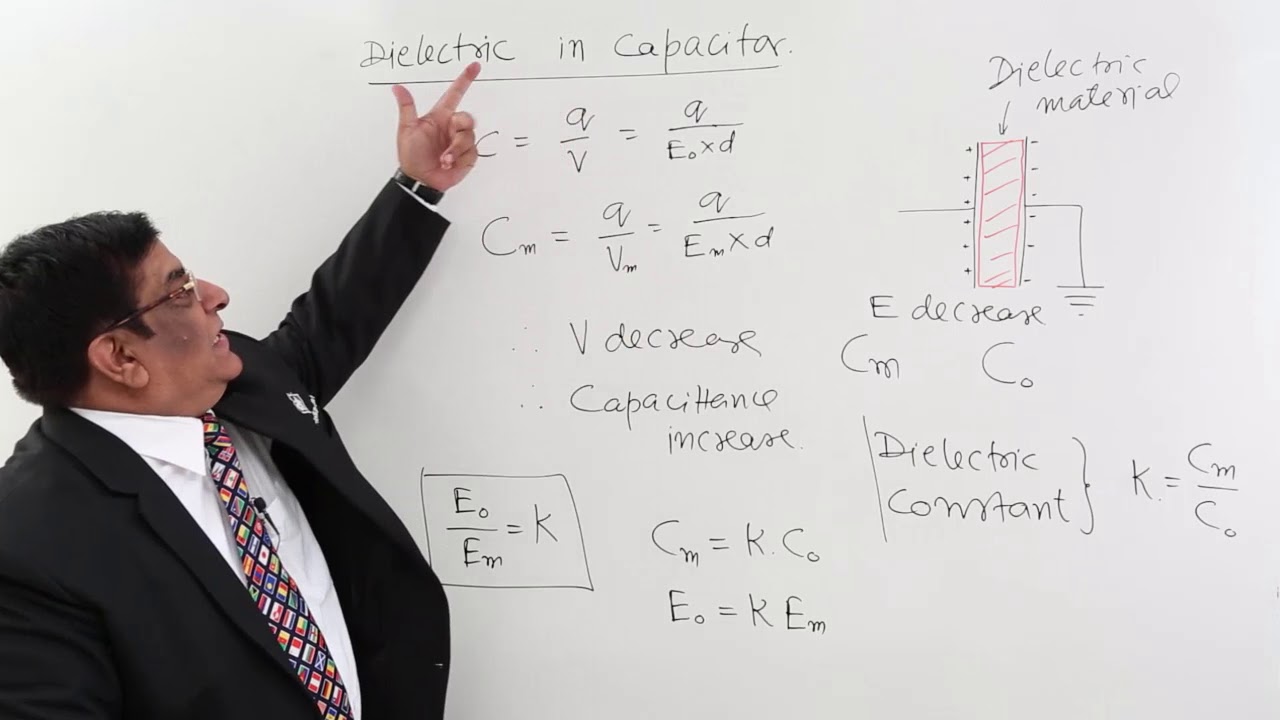 Dielectric in Capacitor.
C = q/V = q/E₀×d
Cₘ = q/Vₘ = q/Eₘ×d
∴ V decrease
∴ Capacittance
increase.
E₀/Eₘ = K
Cₘ = K.C₀
E₀ = K Eₘ
Dielectric
material
+ + + + + +
- - - - - -
E decrease
Cₘ C₀
Dielectric
Constant } K = Cₘ/C₀